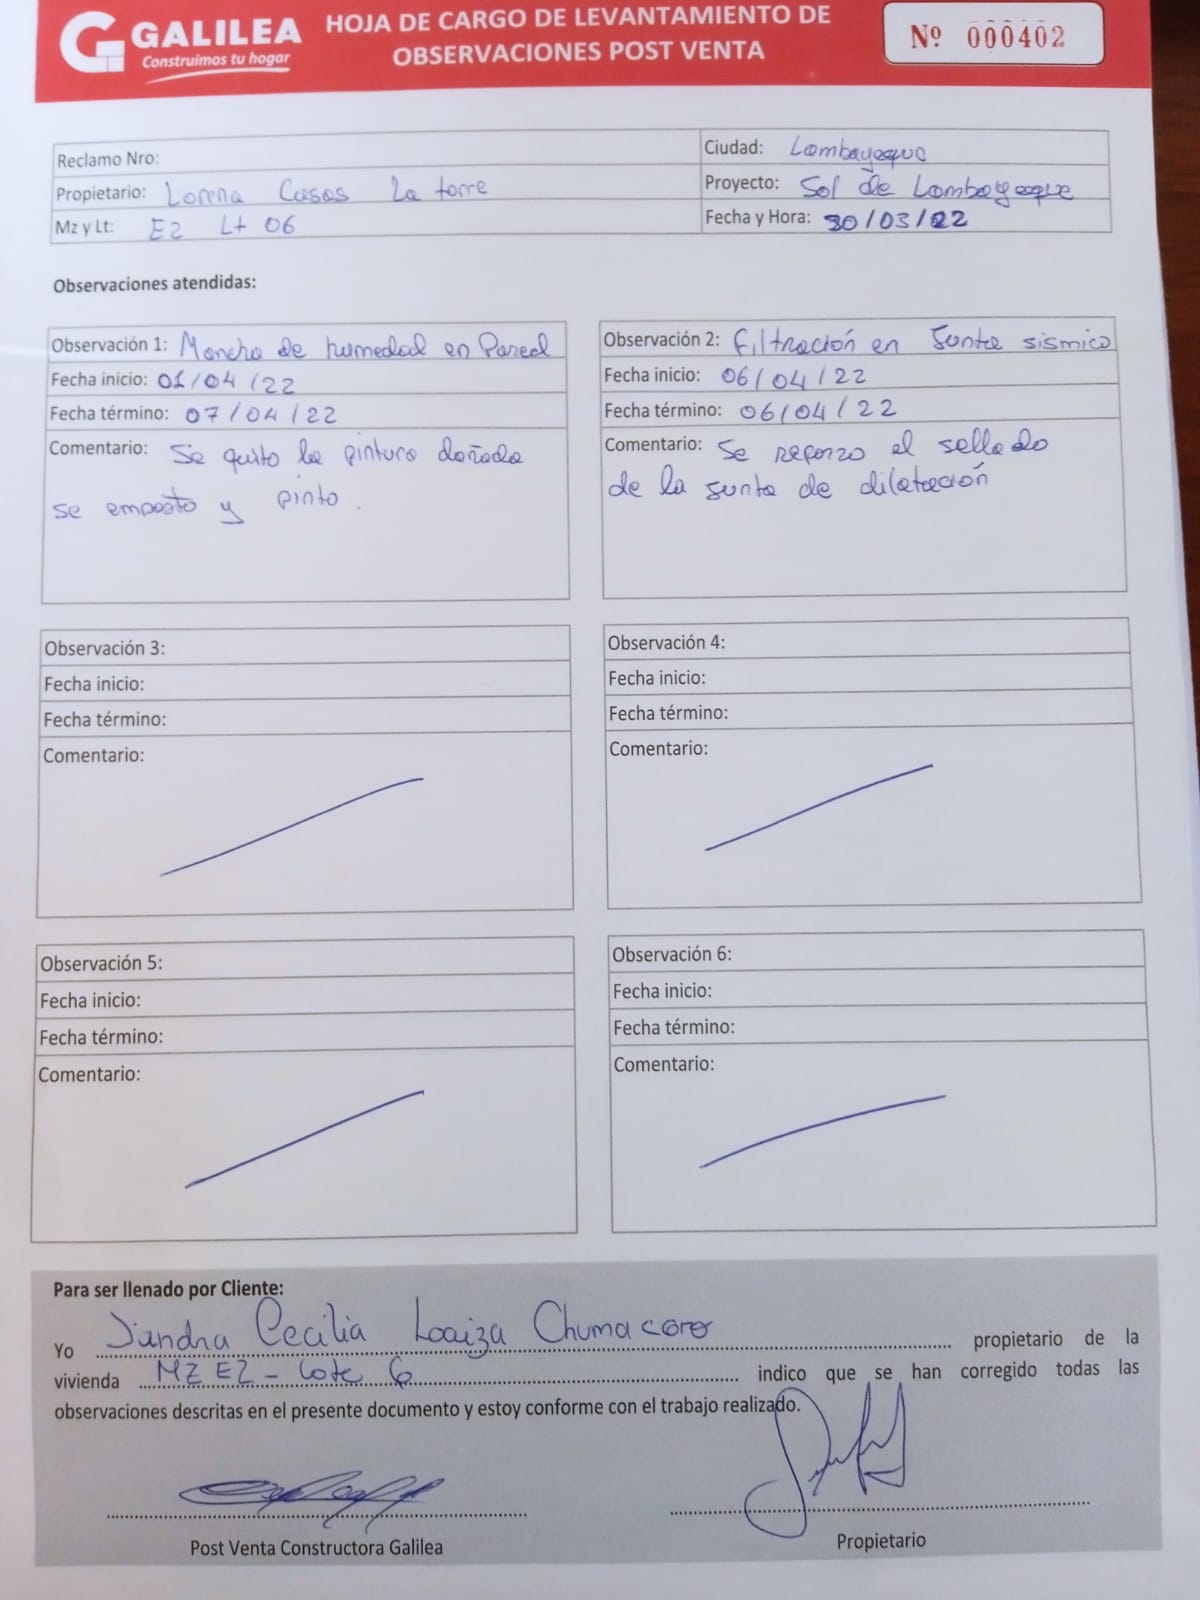 GALILEA
Construimos tu hogar
HOJA DE CARGO DE LEVANTAMIENTO DE
OBSERVACIONES POST VENTA
Nº 000402
Reclamo Nro:
Propietario: Lorena Casas La torre
Mz y Lt: E2 Lt 06
Ciudad: Lambayeque
Proyecto: Sol de Lambayeque
Fecha y Hora: 30/03/22
Observaciones atendidas:
Observación 1: Mancha de humedad en Pared
Fecha inicio: 01/04/22
Fecha término: 07/04/22
Comentario: Se quito la pintura dañada
se empasto y pinto.
Observación 2: Filtración en Junta sismica
Fecha inicio: 06/04/22
Fecha término: 06/04/22
Comentario: Se reforzo el sellado
de la junta de dilatación
Observación 3:
Fecha inicio:
Fecha término:
Comentario:
Observación 4:
Fecha inicio:
Fecha término:
Comentario:
Observación 5:
Fecha inicio:
Fecha término:
Comentario:
Observación 6:
Fecha inicio:
Fecha término:
Comentario:
Para ser llenado por Cliente:
Yo Sandra Cecilia Loaiza Chumacero propietario de la
vivienda MZ E2 - Lote 6 indico que se han corregido todas las
observaciones descritas en el presente documento y estoy conforme con el trabajo realizado.
Post Venta Constructora Galilea
Propietario